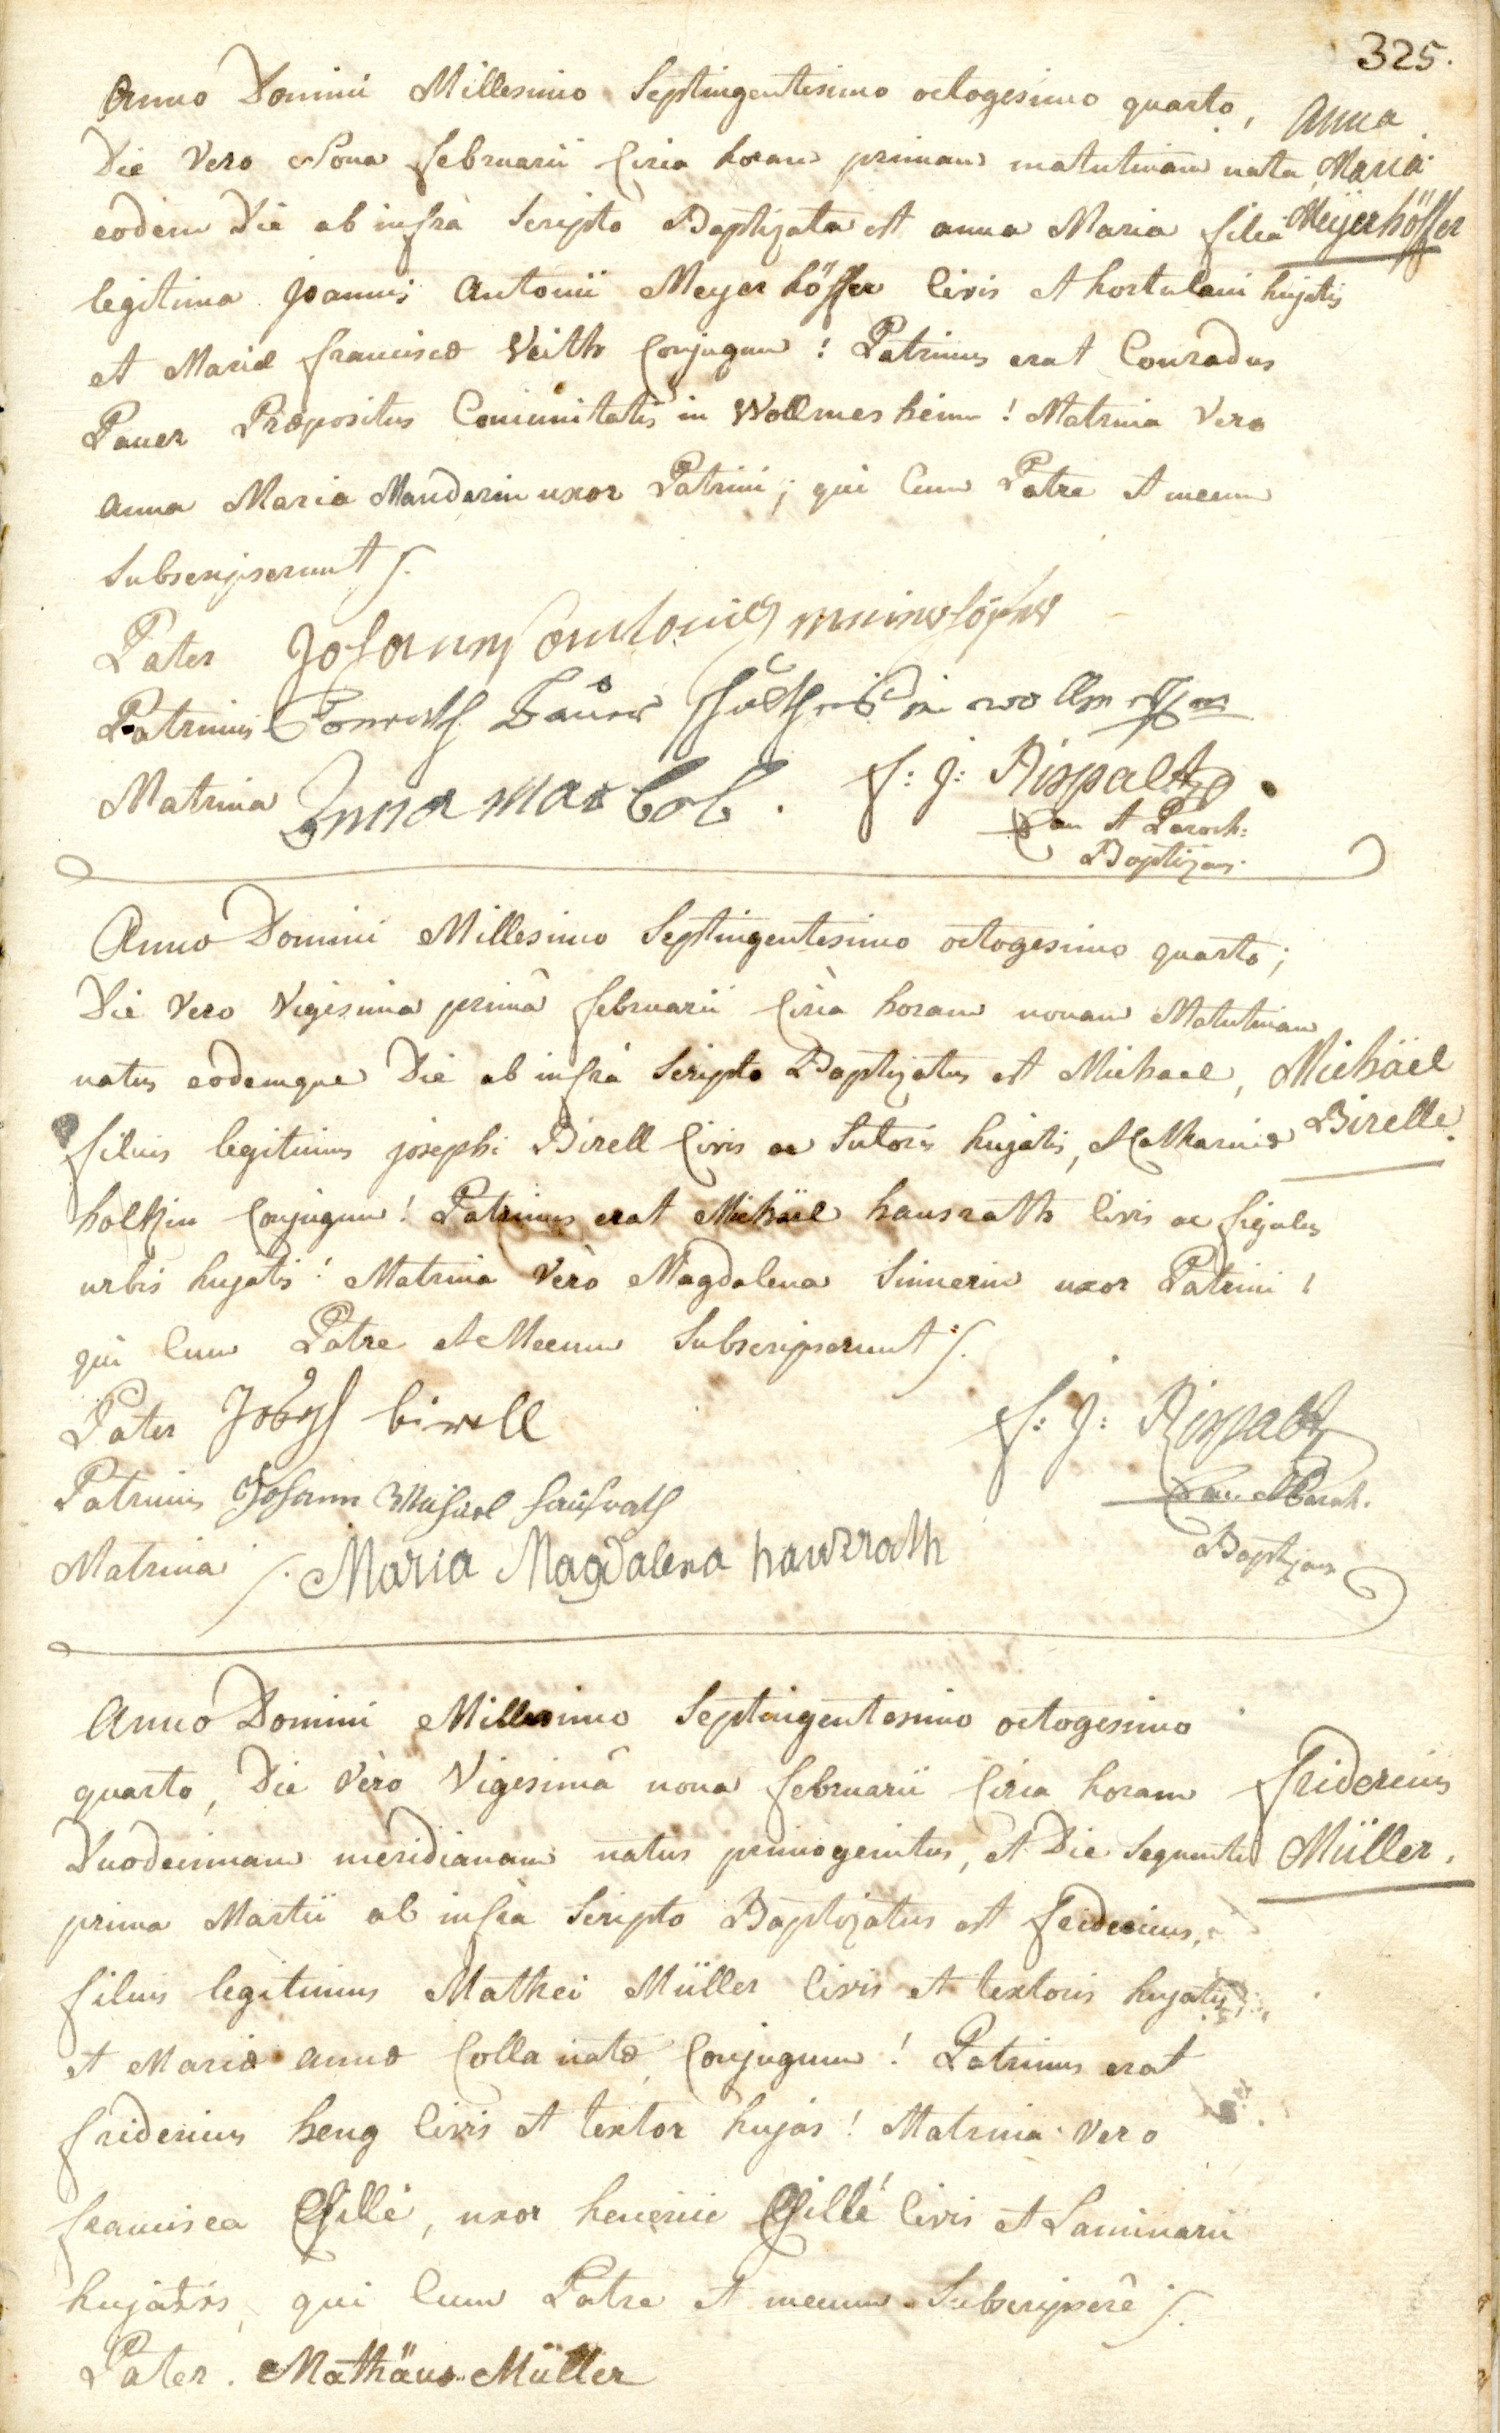 325.
Anno Domini Millesimo Septingentesimo octogesimo quarto,
Die Vero Nona februarii Circa horam primam matutinam nata
eodem Die ab infrà Scripto Baptizata est anna Maria filia
legitima Joannis Antonii Meyerhöffer Civis et hortulani hujatis
et Mariæ franciscæ Veith Conjugum! Patrinus erat Conradus
Pauer Præpositus Communitatis in Wollmesheim! Matrina Vero
anna Maria Mandarin uxor Patrini; qui Cum Patre et mecum
Subscripserunt
Anna
Maria
Meÿerhöffer
Pater Johannes antonius
Patrinus Conrath Bauer
Matrina Anna
f: J: Rispalt
Can et Paroch:
Baptizans.
Anno Domini Millesimo Septingentesimo octogesimo quarto;
Die Vero Vigesima primâ februarii Circa horam nonam Matutinam
natus eodemque Die ab infrà Scripto Baptizatus est Michael,
filius legitimus josephi Birell Civis ac Sutoris hujatis, et Catharinæ
holtzin Conjugum! Patrinus erat Michäel hausrath Civis ac figulus
urbis hujatis! Matrina Verò Magdalena Sinnerin uxor Patrini!
qui Cum Patre et Mecum Subscripserunt
Michäel
Birelle.
Pater Joseph birell
Patrinus Johann Michael Hausrath
Matrina Maria Magdalena hausrath
f: J: Rispalt
Can et Paroch.
Baptizans
Anno Domini Millesimo Septingentesimo octogesimo
quarto, Die Vèro Vigesimâ nona februarii Circa horam
Duodecimam meridianam natus primogenitus, et Die Sequenti
prima Martii ab infrà Scripto Baptizatus est fridericus,
filius legitimus Mathei Müller Civis et textoris hujatis
et Mariæ annæ Colla natæ, Conjugum! Patrinus erat
fridericus heng Civis et textor hujas! Matrina Vero
francisca Gillé, uxor henerici Gillé Civis et Laminarii
hujatis, qui Cum Patre et mecum Subscripserê
fridericus
Müller.
Pater. Mathäus Müller